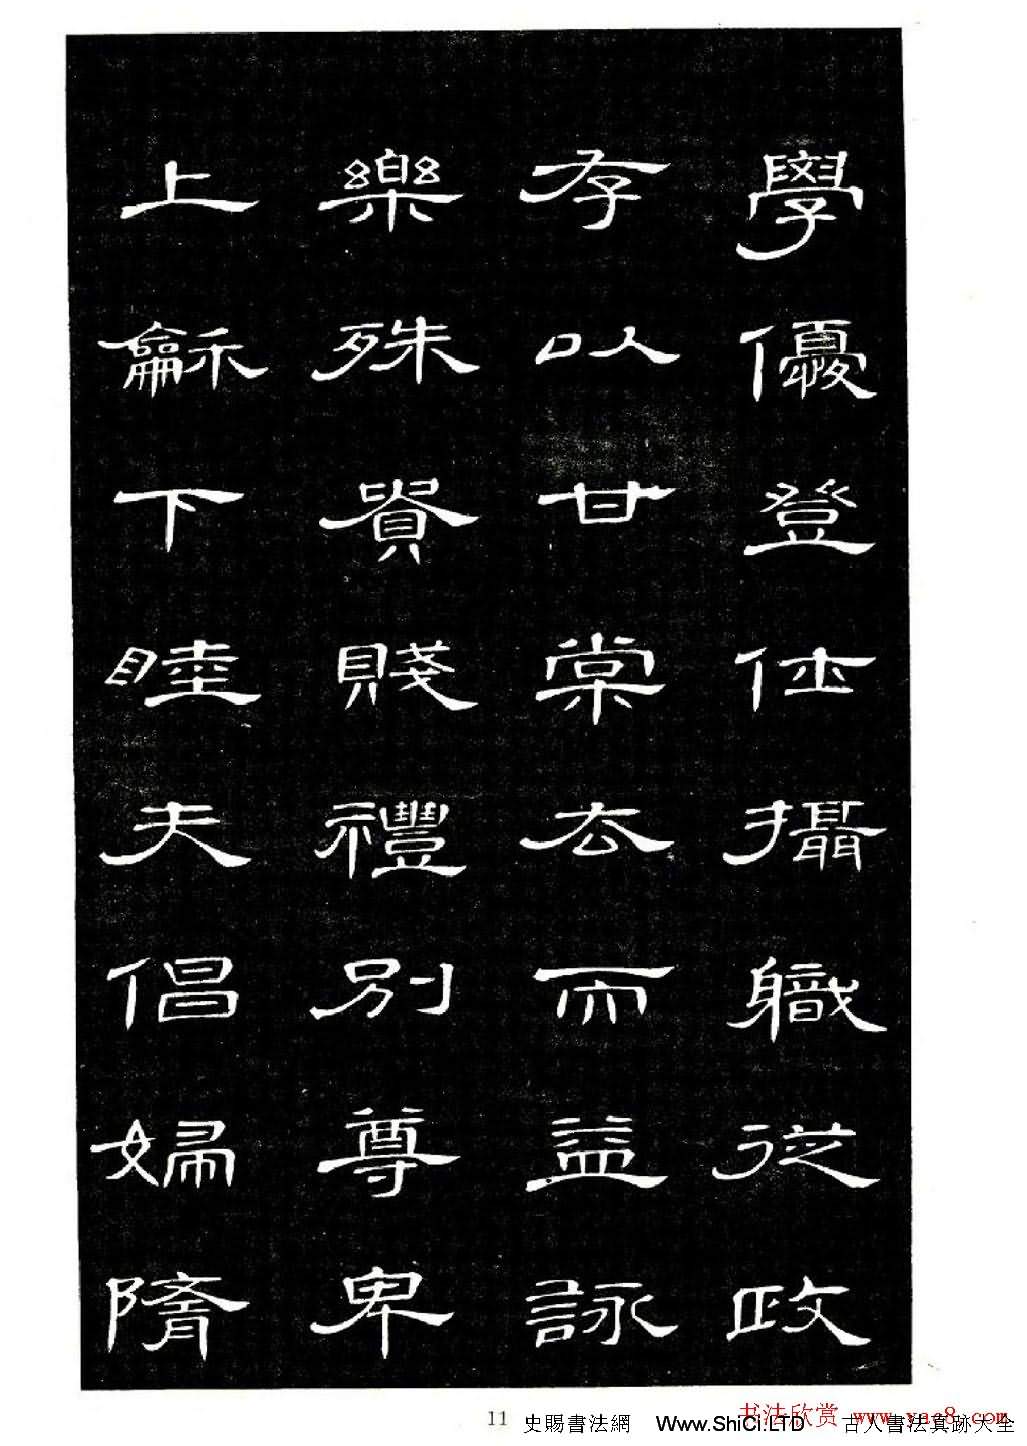 學優登仕攝職從政
存以甘棠去而益詠
樂殊貴賤禮別尊卑
上龢下睦夫倡婦隋
11
史賜書法網 Www.ShiCi.LTD 古人書法真跡大全
书法欣赏 www.yac8.com